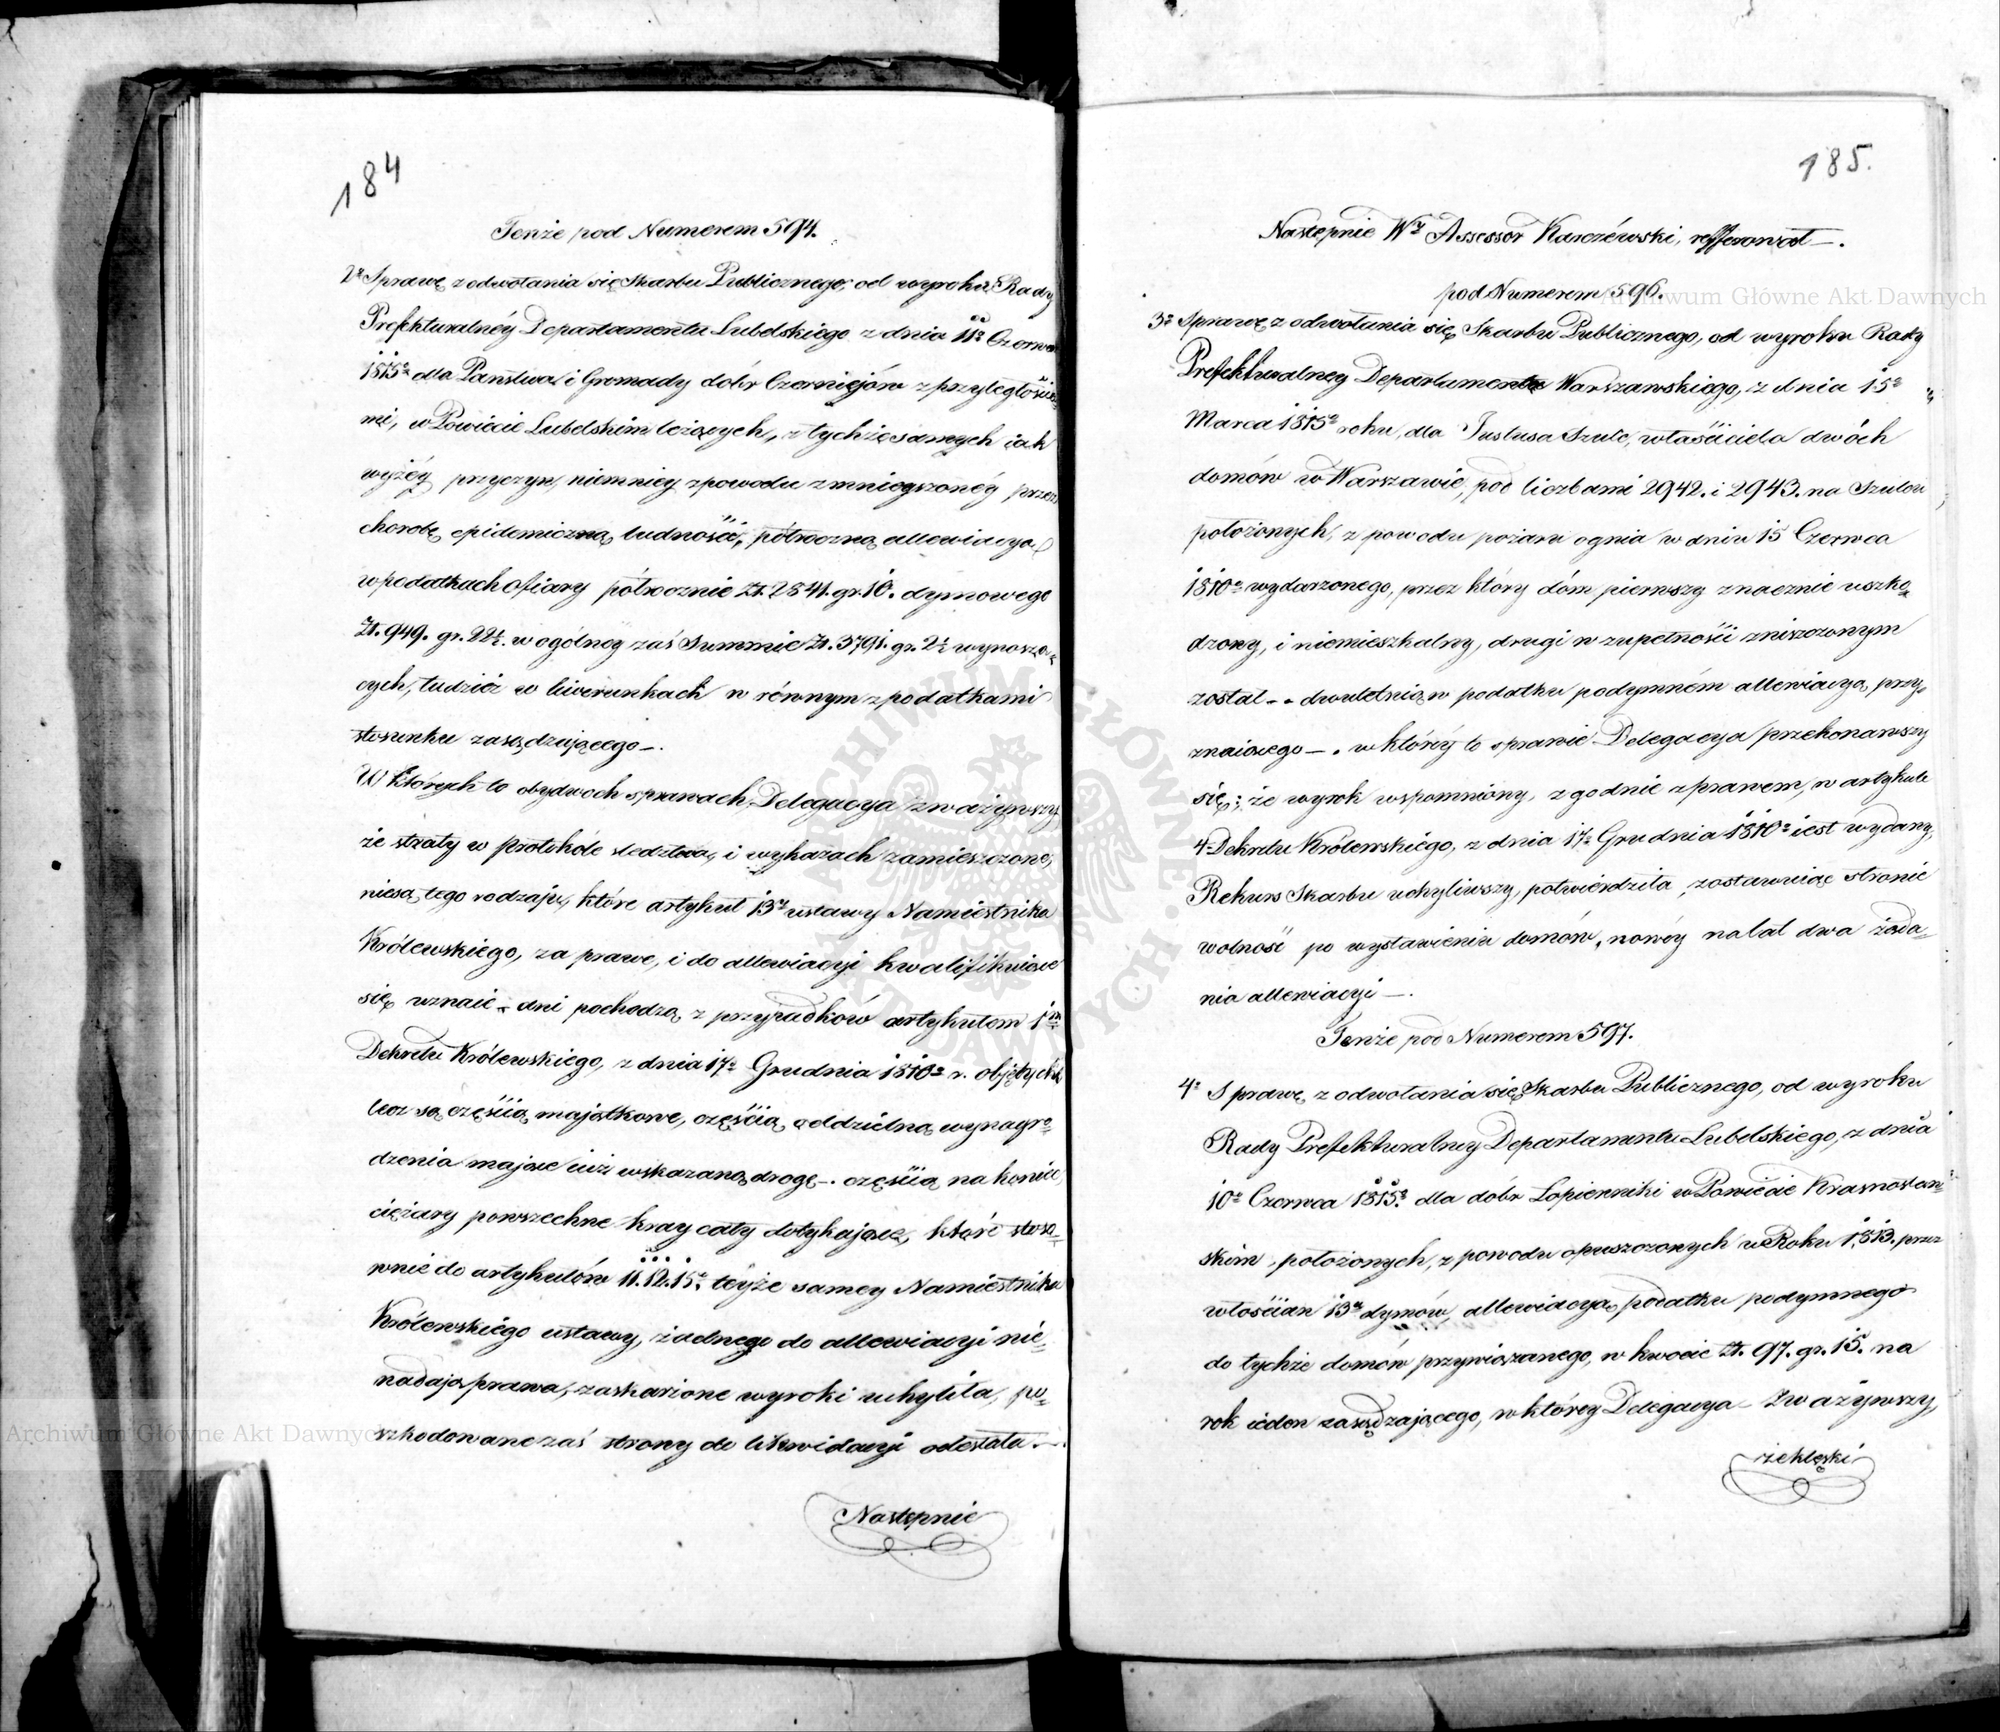 184
Tenże pod Numerem 594.
2º Sprawę z odwołania się Skarbu Publicznego, od wyroku Rady
Prefekturalnéy Departamentu Lubelskiego z dnia 11º Czerwca
1815º dla Państwa i Gromady dóbr Czerniejów z przyległościa=
mi, w Powiecie Lubelskim leżących, z tychże samych iak
wyżéy przyczyn, niemniey z powodu zmnieyszonéy przez
chorobę epidemiczną ludności, półroczną allewiacyą
w podatkach ofiary półrocznie Zł. 2841. gr. 10. dymowego
Zł. 949. gr. 22½. w ogólnéy zaś Summie Zł. 3791. gr. 2½ wynoszą=
cych, tudzież w liwerunkach w równym z podatkami
stosunku zasądzaiącego —.
W których to obydwoch sprawach, Delegacya zważywszy
że straty w protokóle śledztwa, i wykazach zamieszczone,
niesą tego rodzaju, które artykuł 13ty ustawy Namiestnika
Królewskiego, za prawe, i do allewiacyi kwalifikuiące
się uznaie — ani pochodzą z przypadków artykułem 1m
Dekretu Królewskiego, z dnia 17º Grudnia 1810º r. objętych
lecz są częścią majątkowe, częścią oddzielną wynagro=
dzenia mające iuż wskazaną drogę —. częścią na koniec
ciężary powszechne kray cały dotykające, które stoso=
wnie do artykułów 11. 12. 15º. téyże samey Namiestnika
Królewskiego ustawy, żadnego do allewiacyi nie=
nadają prawa, zaskarżone wyroki uchyliła, po=
szkodowane zaś strony do likwidacyi odesłała —.
Następnie
185.
Następnie Wy Assessor Karczéwski, refferował —.
pod Numerem 596.
3º Sprawę z odwołania się Skarbu Publicznego, od wyroku Rady
Prefekturalney Departamentu Warszawskiego, z dnia 15º
Marca 1815º roku, dla Justusa Szulc, właściciela dwóch
domów w Warszawie, pod liczbami 2942. i 2943. na Szulcu
położonych, z powodu pożaru ognia w dniu 15 Czerwca
1810º wydarzonego, przez który dóm pierwszy znacznie uszko=
dzony, i niemieszkalny, drugi w zupełności zniszczonym
został — dwuletnią w podatku podymném allewiacyą przy=
znaiącego —. w któréy to sprawie Delegacya przekonawszy
się; że wyrok wspomniony, zgodnie z prawem, w artykule
4 Dekretu Królewskiego, z dnia 17º Grudnia 1810º iest wydany,
Rekurs Skarbu uchyliwszy, potwierdziła, zostawuiąc stronie
wolność po wystawieniu domów, nowéy na lat dwa żąda=
nia allewiacyi —.
Tenże pod Numerem 597.
4º Sprawę z odwołania się Skarbu Publicznego, od wyroku
Rady Prefekturalney Departamentu Lubelskiego, z dnia
10º Czerwca 1815º. dla dóbr Łopienniki w Powiecie Krasnostaw=
skim, położonych, z powodu opuszczonych w Roku 1813. przez
włościan 13u dymów, allewiacyą podatku podymnego
do tychże domów przywiązanego, w kwocie Zł. 97. gr. 15. na
rok ieden zasądzającego, w któréy Delegacya zważywszy,
że klęski
Archiwum Główne Akt Dawnych
Archiwum Główne Akt Dawnych
ARCHIWUM GŁÓWNE AKT DAWNYCH